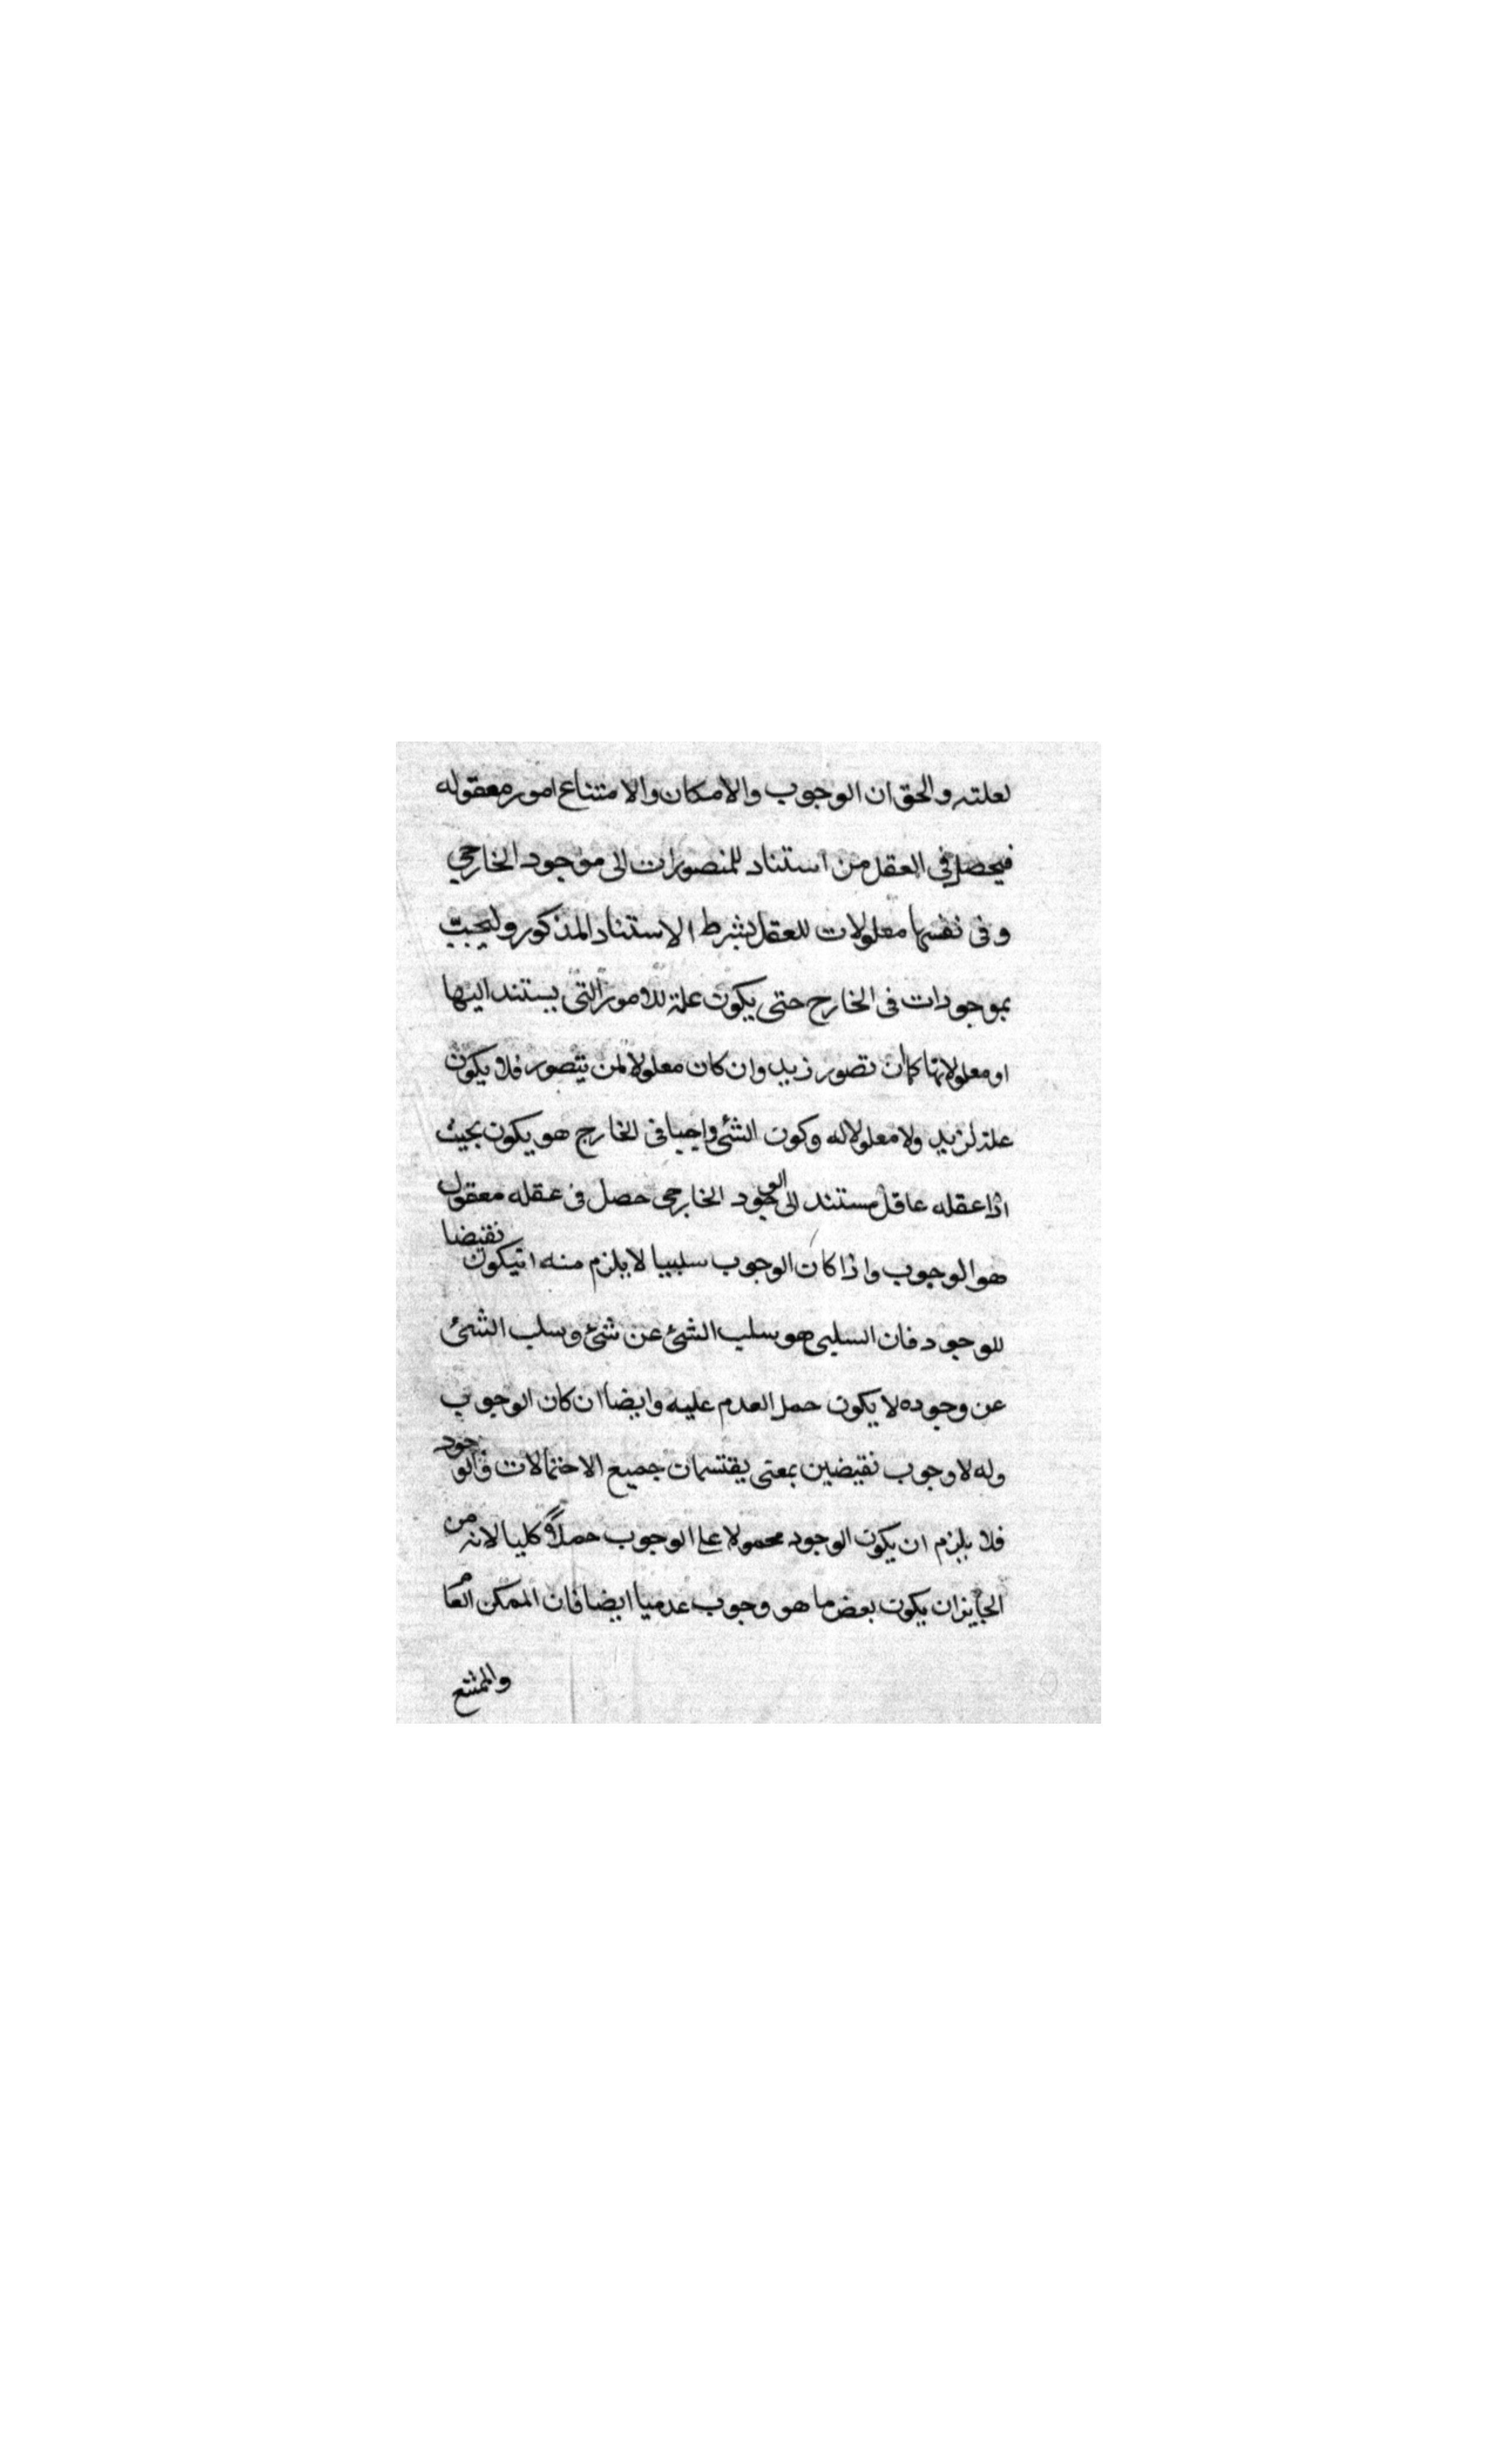 لعلته والحق ان الوجوب والامكان والامتناع امور معقوله
فيحصل فى العقل من استناد المتصورات الى موجود الخارجي
وفى نفسها معلولات للعقل بشرط الاستناد المذكور وليست
بموجودات فى الخارج حتى يكون علة للامور التى يستند اليها
او معلولاتها كما ان تصور زيد وان كان معلولا لمن يتصور فلا يكون
علة لزيد ولا معلولا له وكون الشئ واجبا فى الخارج هو يكون بحيث
اذا عقله عاقل مستند الى الوجود الخارجى حصل فى عقله معقول
هو الوجوب واذا كان الوجوب سلبيا لا يلزم منه ان يكون نقيضا
للوجود فان السلبى هو سلب الشئ عن شئ وسلب الشئ
عن وجوده لا يكون حمل العدم عليه وايضا ان كان الوجوب
وله لا وجوب نقيضين بمعنى يقتسمان جميع الاحتمالات فالوجود
فلا يلزم ان يكون الوجود محمولا على الوجوب حملا كليا لانه من
الجايز ان يكون بعض ما هو وجوب عدميا ايضا فان الممكن العام
والممتنع